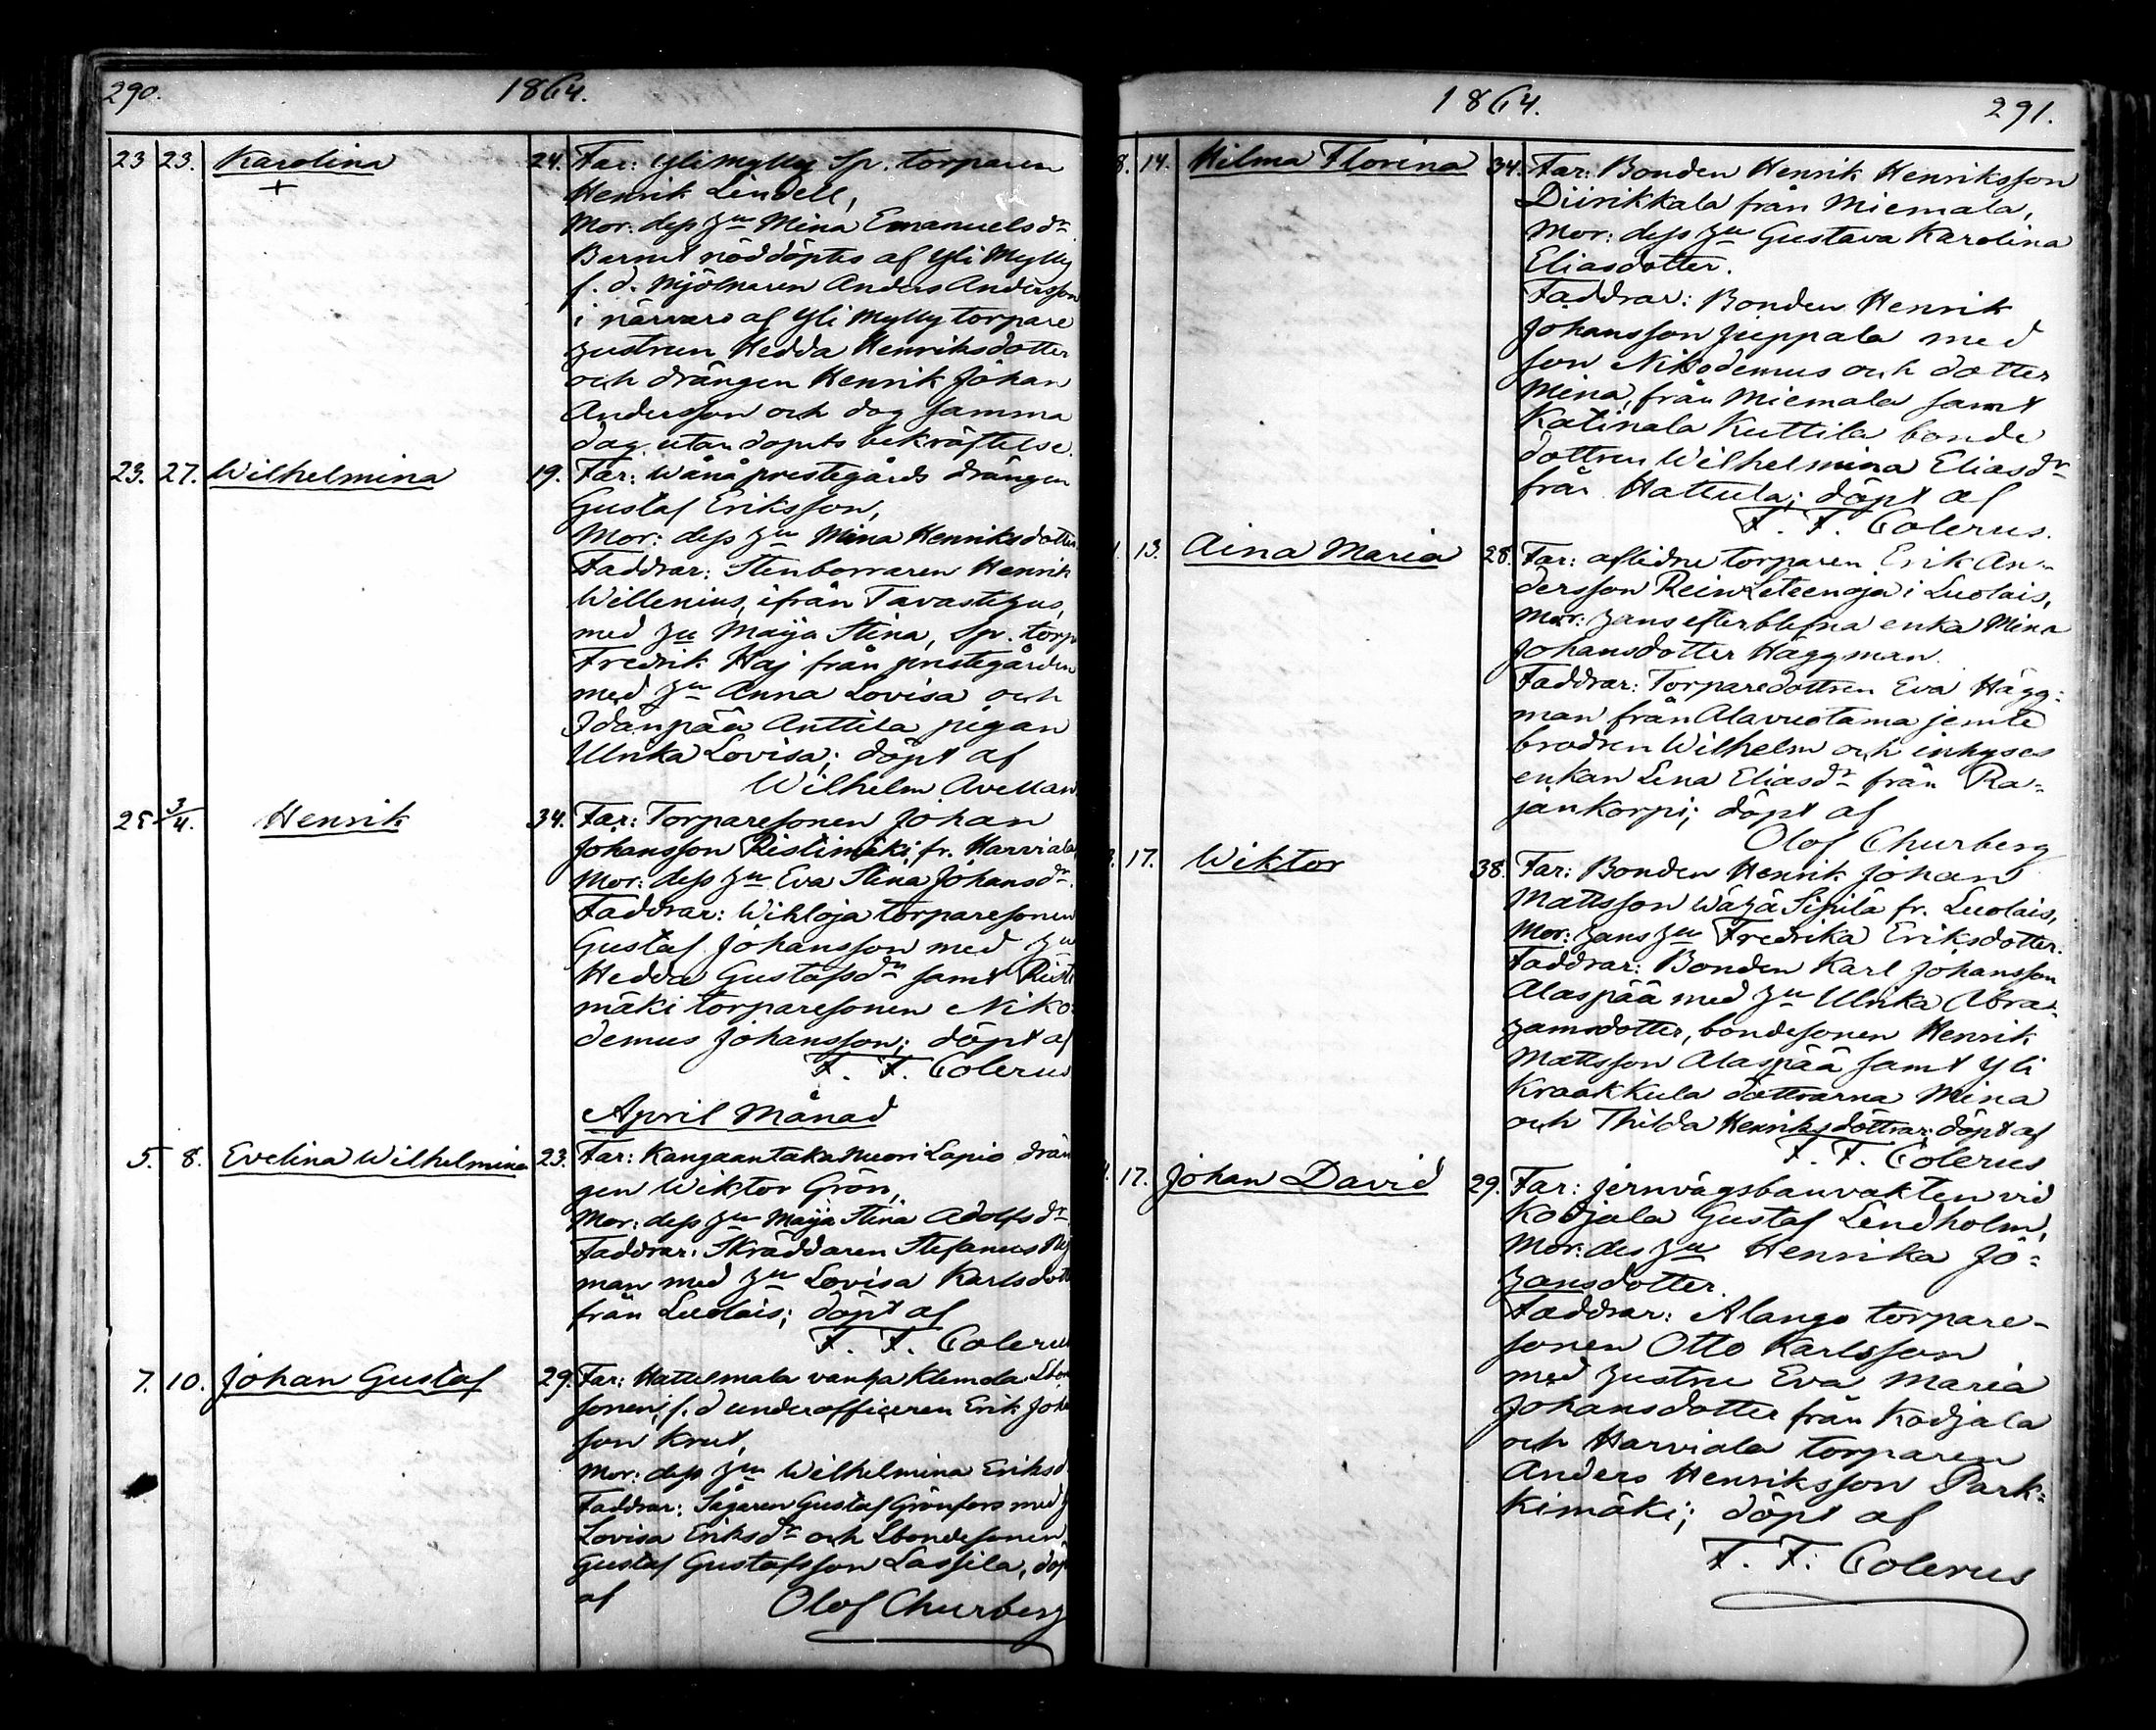 290.
1864.
23 23. Karolina 24. Far: Yli Mylly Sp. torparen
+ Henrik Lindell,
Mor: dess hu Mina Emanuelsdr
Barnet nöddöptes af Yli Mylly
f. d. Mjölnaren Anders Andersson
i närvaro af Yli Mylly torpare
hustrun Hedda Henriksdotter
och drängen Henrik Johan
Andersson och dog samma
dag utan dopets bekräftelse.
23. 27. Wilhelmina 19. Far: Wånå prestegårds drängen
Gustaf Eriksson,
Mor: dess hu Mina Henriksdotter
Faddrar: Stenborraren Henrik
Willenius, ifrån Tavastehus,
med hu Maija Stina, Sp. torp
Fredrik Haj från prestegården
med hu Anna Lovisa och
Idänpää Anttila pigan
Ulrika Lovisa; döpt af
Wilhelm Avellan
25 3/4. Henrik 34. Far: Torparesonen Johan
Johansson Ristimäki fr. Harviala
Mor: dess hu Eva Stina Johansdr
Faddrar: Wikloja torparesonen
Gustaf Johansson med hu
Hedda Gustafsdr samt Risti
mäki torparesonen Niko-
demus Johansson; döpt af
F. F. Colerus
April Månad
5. 8. Evelina Wilhelmina 23. Far: Kangaantaka Nuori Lapio drän
gen Wiktor Grön,
Mor: dess hu Maija Stina Adolfsdr
Faddrar: Skräddaren Stefanus
man med hu Lovisa Karlsdott
från Luolais; döpt af
F. F. Colerus
7. 10. Johan Gustaf 29. Far: Hattelmala vanha Klemola
sonen, f. d underofficeren Erik Joha
son Krut,
Mor: dess hu Wilhelmina Eriksd
Faddrar: Sågaren Gustaf Grönfors med h
Lovisa Eriksdr och Lbondesonen
Gustaf Gustafsson Lassila, döpt
af Olof Churberg
1864.
291.
8. 14. Hilma Florina 34. Far: Bonden Henrik Henriksson
Diirikkala från Miemala,
Mor: dess hu Gustava Karolina
Eliasdotter.
Faddrar: Bonden Henrik
Johansson Juppala med
son Nikodemus och dotter
Mina, från Miemala samt
Katinala Kuttila bonde
dottren Wilhelmina Eliasdr
från Hattula; döpt af
F. F. Colerus.
13. Aina Maria 28. Far: aflidne torparen Erik An-
dersson Reinleteenoja i Luolais,
Mor: hans efterblefna enka Mina
Johansdotter Häggman.
Faddrar: Torparedottren Eva Hägg-
man från Alavuotama jemte
brodren Wilhelm och inhyses
enkan Lena Eliasdr från Ra-
jänkorpi; döpt af
Olof Churberg
17. Wiktor 38. Far: Bonden Henrik Johan
Mattsson Wähä Sipilä fr. Luolais,
Mor: hans hu Fredrika Eriksdotter.
Faddrar: Bonden Karl Johansson
Alaspää med hu Ulrika Abra-
hamsdotter, bondesonen Henrik
Mattsson Alaspää samt Yli
Kraakkula döttrarna Mina
och Thilda Henriksdöttrar; döpt af
F. F. Colerus
17. Johan David 29. Far: jernvägsbanvakten vid
Kodjala Gustaf Lindholm,
Mor: des hu Henrika Jo-
hansdotter.
Faddrar: Alango torpare-
sonen Otto Karlsson
med hustru Eva Maria
Johansdotter från Kodjala
och Harviala torparen
Anders Henriksson Park-
kimäki; döpt af
F. F. Colerus